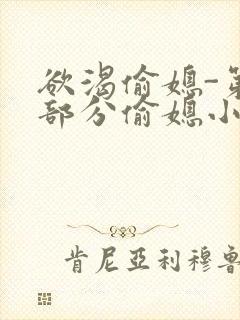 欲渴偷媳-第
部分偷媳小
肯尼亞利穆魯